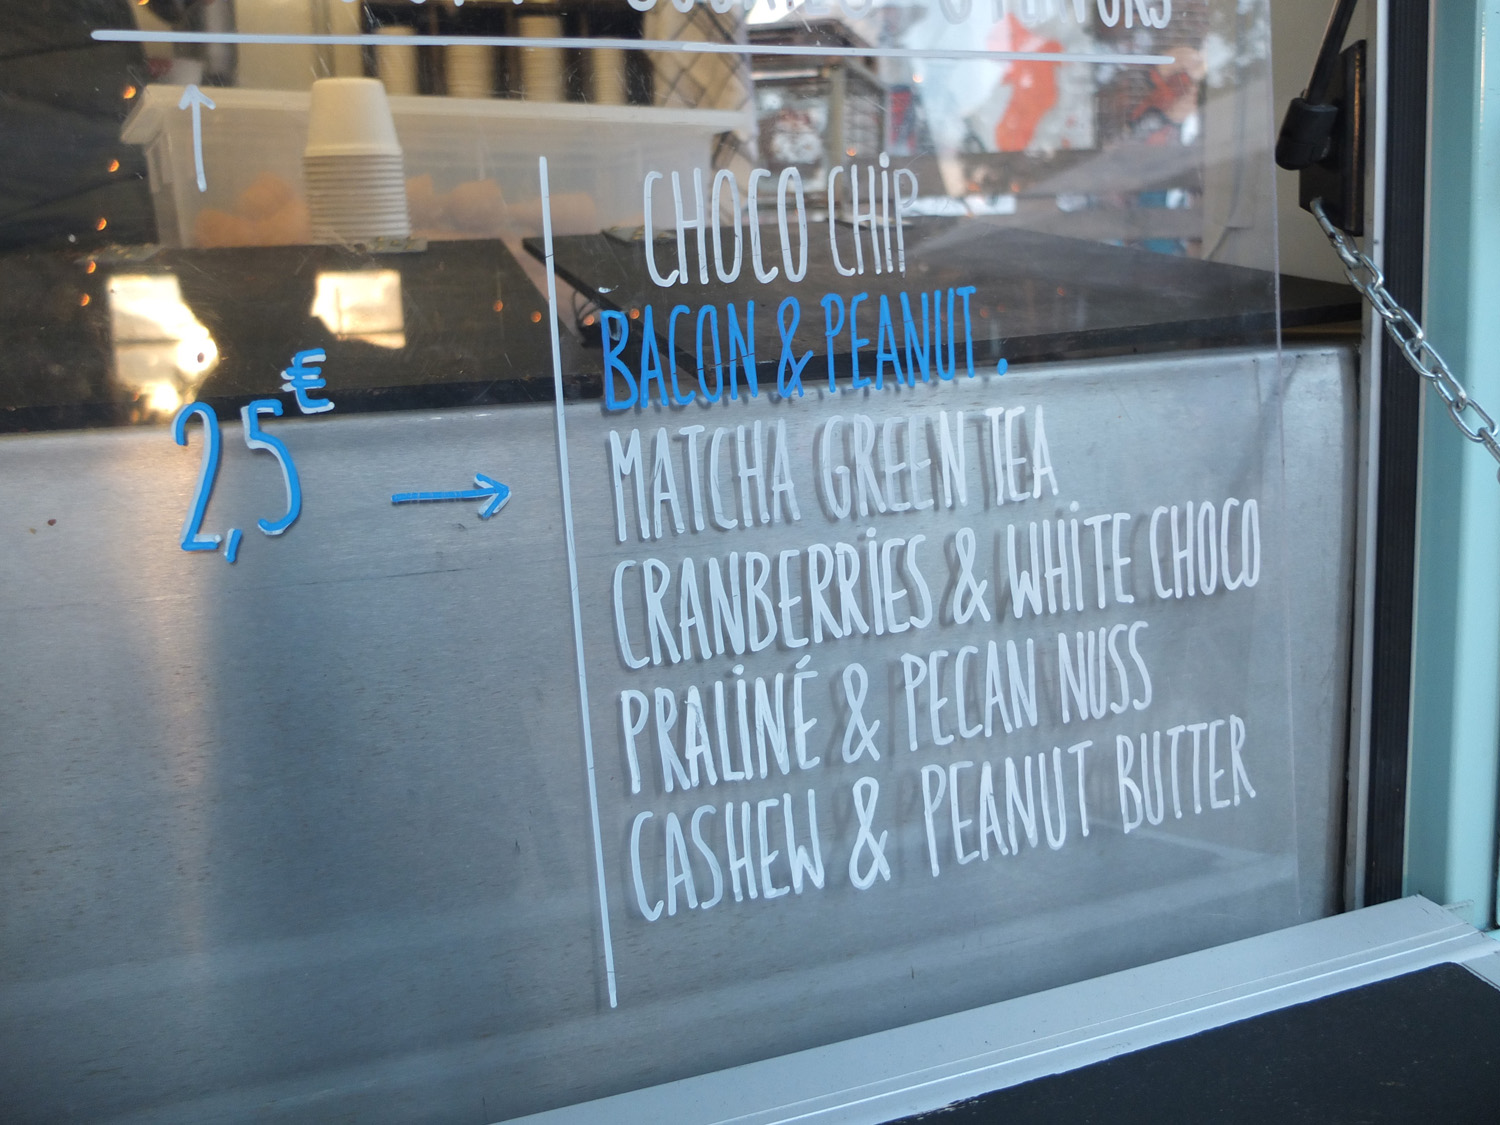 CHOCO CHiP
BACON & PEANUT.
2,5€ →
MATCHA GREEN TEA
CRANBERRiES & WHiTE CHOCO
PRALiNÉ & PECAN NUSS
CASHEW & PEANUT BUTTER